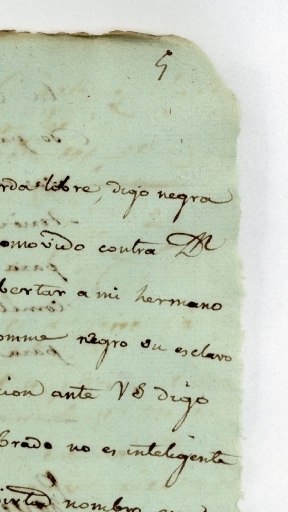 5
rda libre, digo negra
omovido contra Dn
bertar a mi hermano
omme negro su esclavo
cion ante VS digo
brado no es inteligente
nombro